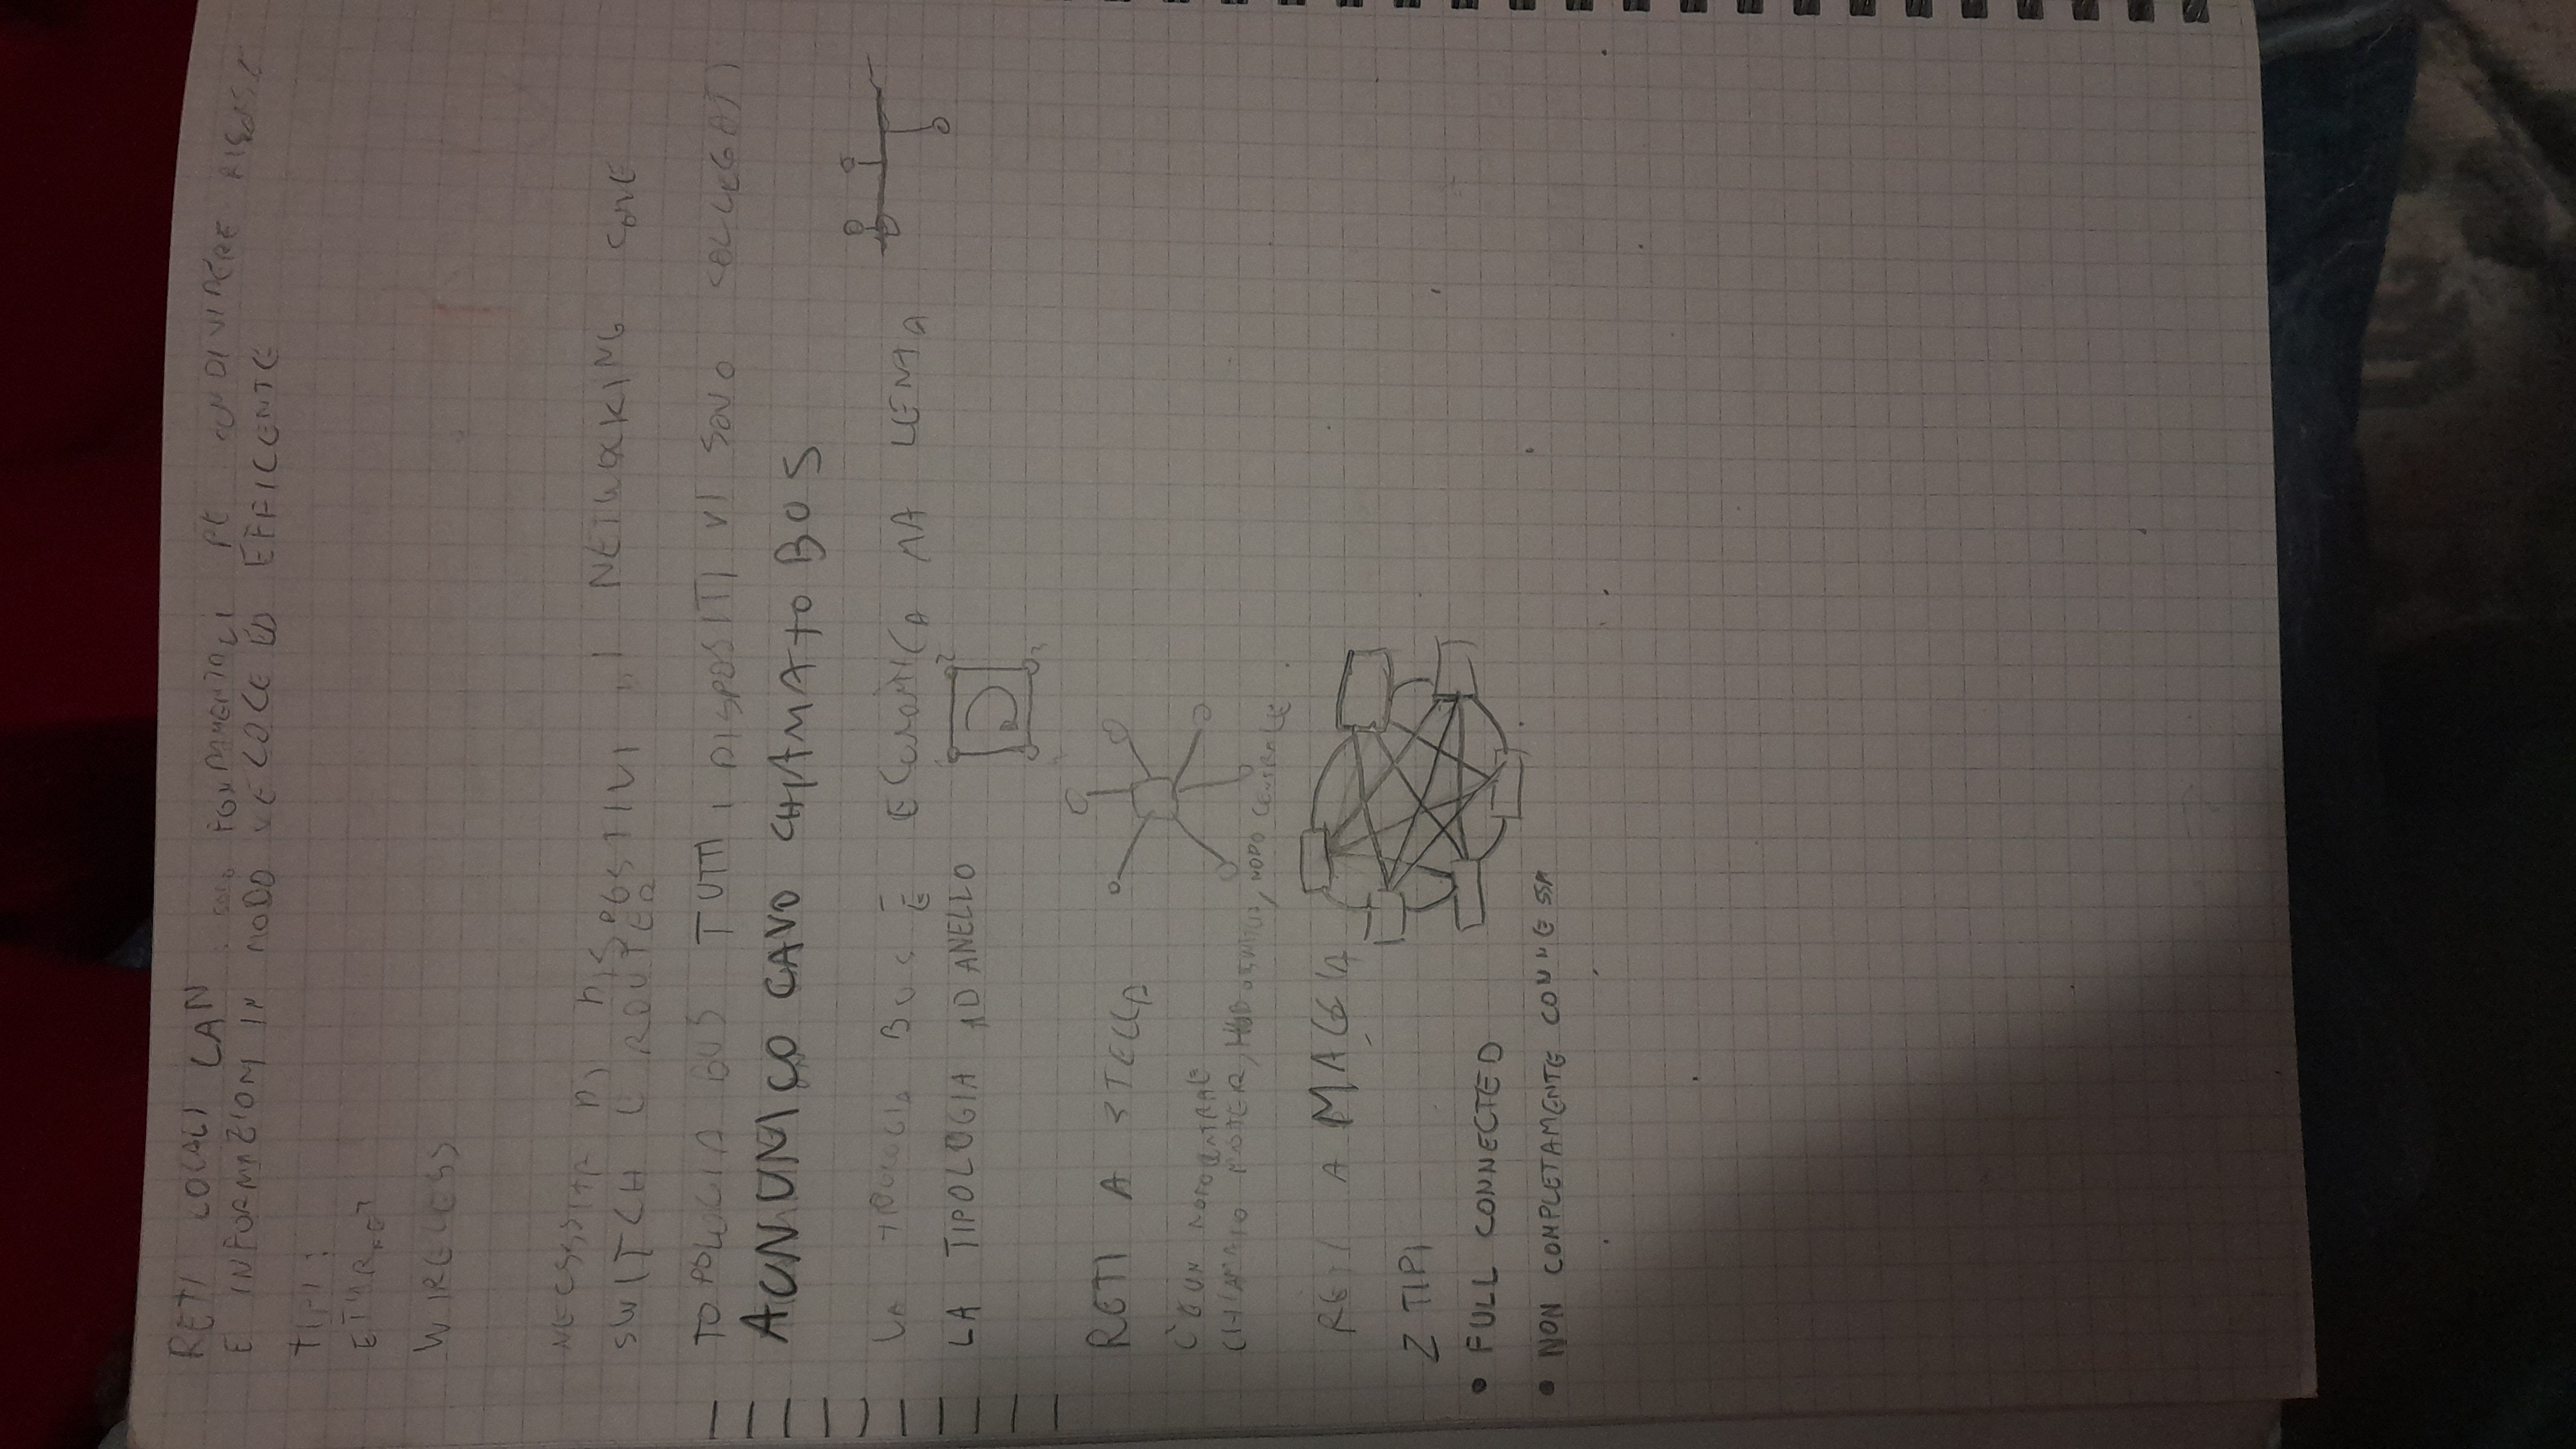 RETI LOCALI LAN: SONO FONDAMENTALI PE CONDIVIDERE RISORSE
E INFORMAZIONI IN MODO VELOCE ED EFFICENTE
TIPI:
ETHRNET
WIRELESS
NECESSITA DI DISPOSTIVI DI NETWORKING COME
SWITCH E ROUTER
TOPOLOGIA BUS TUTTI I DISPOSITIVI SONO COLLEGATI
A UN UNICO CAVO CHIAMATO BUS
LA TIPOLOGIA BUS È ECONOMICA MA LENTA
LA TIPOLOGIA AD ANELLO
2
3
RETI A STELLA
C'È UN NODO CENTRALE
CHIAMATO MASTER, HUB O SWITCH, NODO CENTRALE
RETI A MAGLIA
2 TIPI
• FULL CONNECTED
• NON COMPLETAMENTE CONNESSA